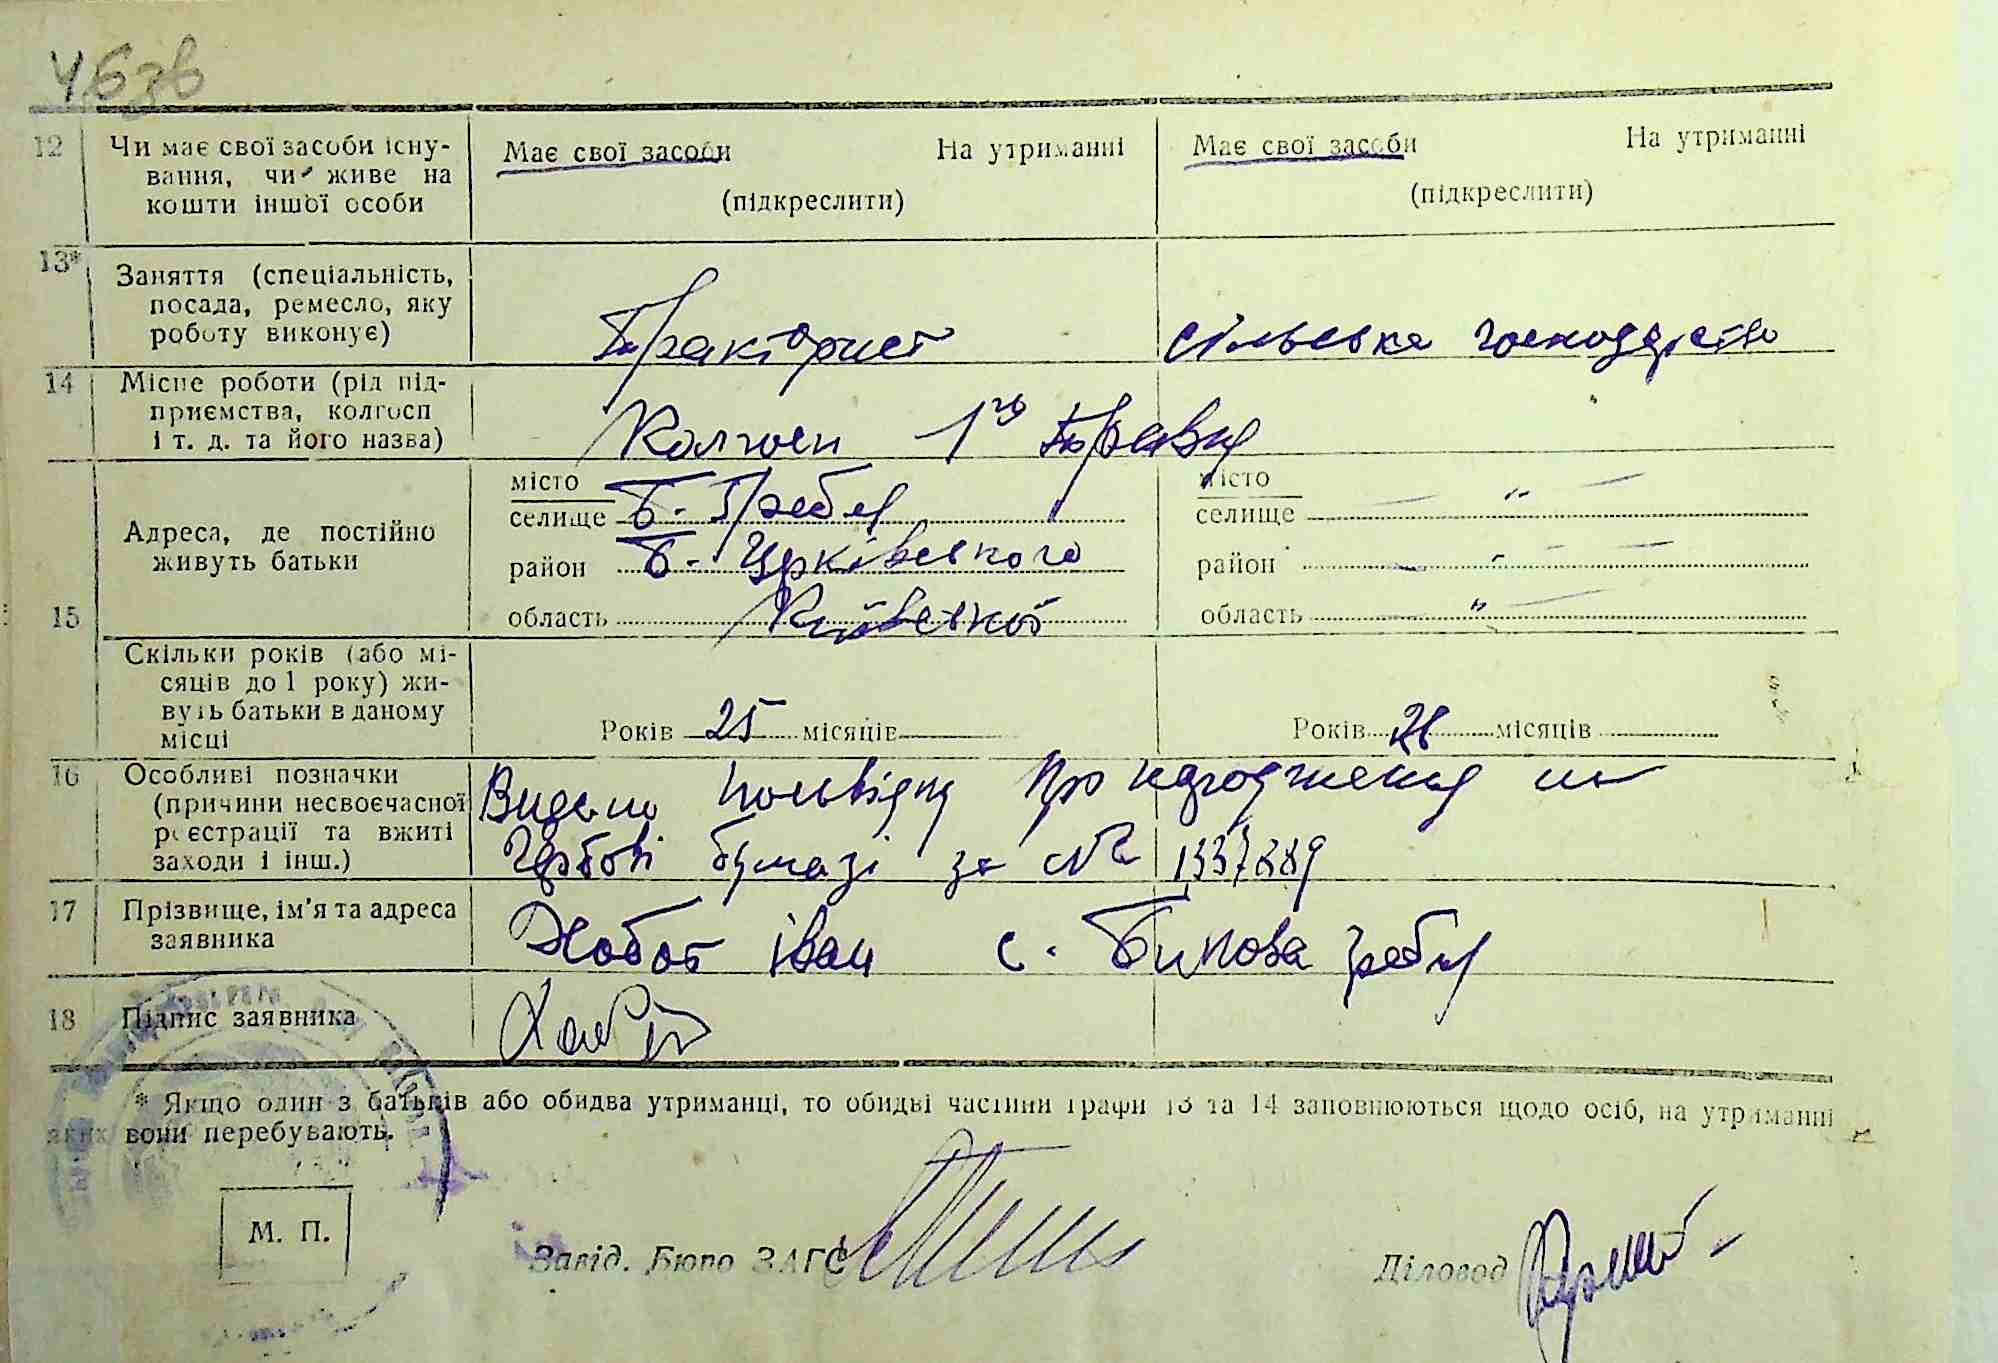 463в
12 Чи має свої засоби існу-
вання, чи живе на
кошти іншої особи
Має свої засоби На утриманні
(підкреслити)
Має свої засоби На утриманні
(підкреслити)
13* Заняття (спеціальність,
посада, ремесло, яку
роботу виконує)
Тракторист
сільське господарство
14 Місце роботи (рід під-
приємства, колгосп
і т. д. та його назва)
Колгосп 1го Травня
15 Адреса, де постійно
живуть батьки
місто
селище Б. Гребля
район Б. Церківського
область Київської
місто
селище — " —
район — " —
область — " —
Скільки років (або мі-
сяців до 1 року) жи-
вуть батьки в даному
місці
Років 25 місяців
Років 26 місяців
16 Особливі позначки
(причини несвоєчасної
реєстрації та вжиті
заходи і інш.)
Видано посвідку про народження на
гербові бумазі за № 1337889
17 Прізвище, ім'я та адреса
заявника
Хобот Іван с. Бикова гребля
18 Підпис заявника
* Якщо один з батьків або обидва утриманці, то обидві частини графи 13 та 14 заповнюються щодо осіб, на утриманні
яких вони перебувають.
М. П.
Завід. Бюро ЗАГС
Діловод